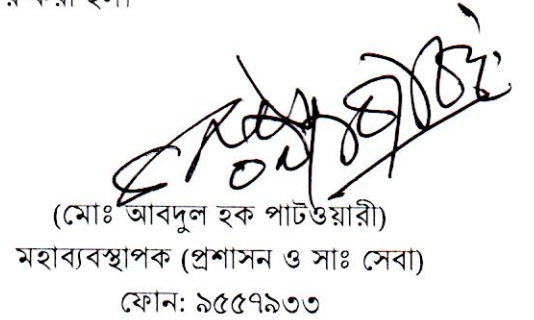 (মোঃ আবদুল হক পাটওয়ারী)
মহাব্যবস্থাপক (প্রশাসন ও সাঃ সেবা)
ফোন: ৯৫৫৭৯৩৩